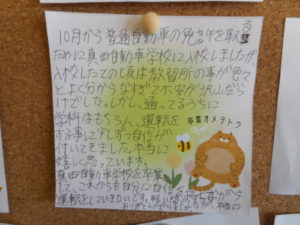 10月から普通自動車の免許を取る
ために真田自動車学校に入校しましたが
入校したての頃は教習所の事が色々
とよく分からなすぎて不安が沢山だら
けでした。しかし、通ってるうちに
学科はもちろん、運転を
する事に少しずつ自信が
付いてきました。本当に
嬉しく思っています。
真田自動車学校を卒業
して、これからも自分に自信
運転をしていきたいです。
ありがとうございました。
卒業オメデトウ